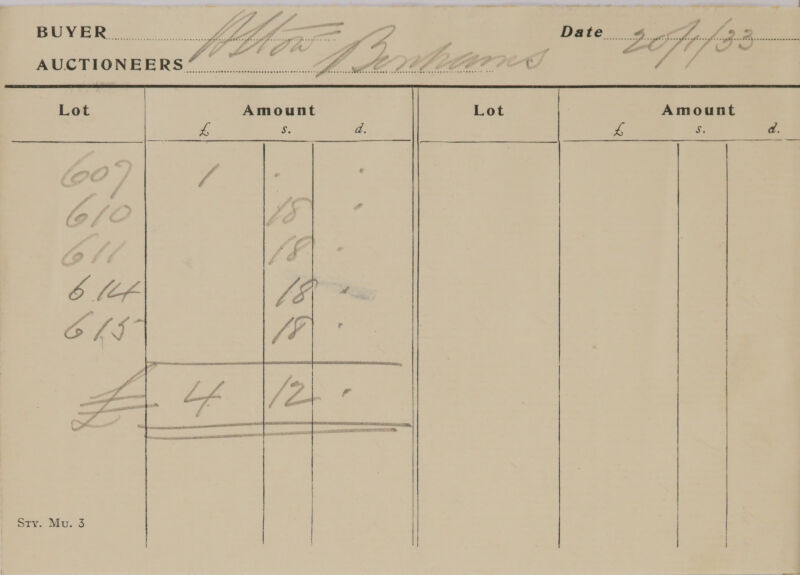 BUYER Alton Date 20/1/33
AUCTIONEERS Bonhams
Lot Amount Lot Amount
£ s. d. £ s. d.
607 1 . .
610 18 .
611 18 .
614 18 .
615 18 .
£ 4 12 .
STY. MU. 3